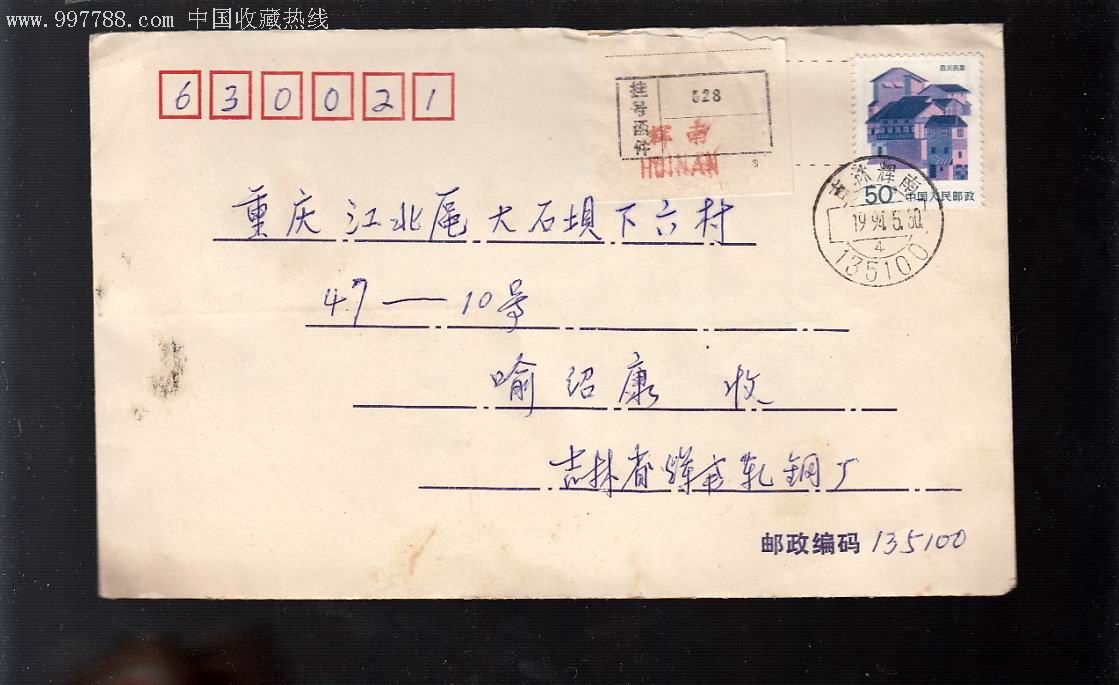 www.997788.com 中国收藏热线
630021
挂号函件
528
辉南
HUINAN
四川民居
50分
中国人民邮政
吉林辉南
1994.5.30.
4
135100
重庆江北尾大石坝下六村
47—10号
喻绍康 收
吉林省辉南轧钢厂
邮政编码 135100